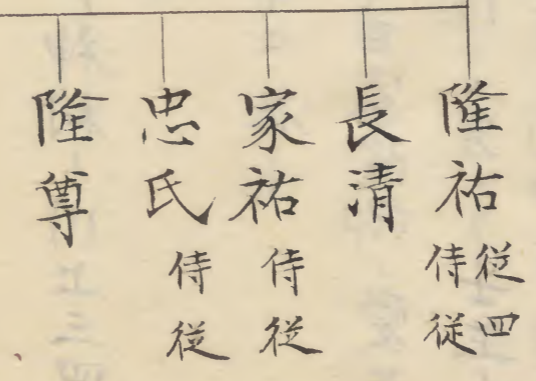 隆祐 従四 侍従
長清
家祐 侍従
忠氏 侍従
隆尊